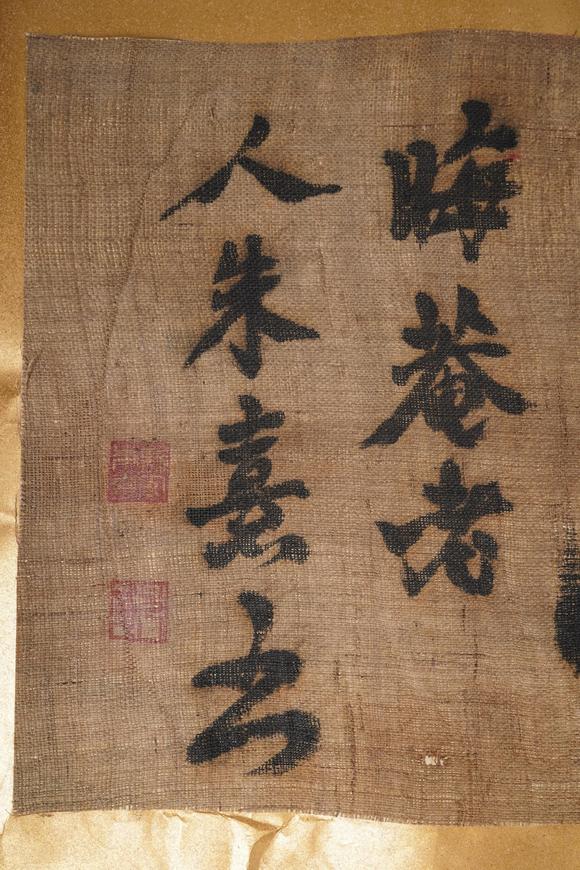 晦菴老
人朱熹书